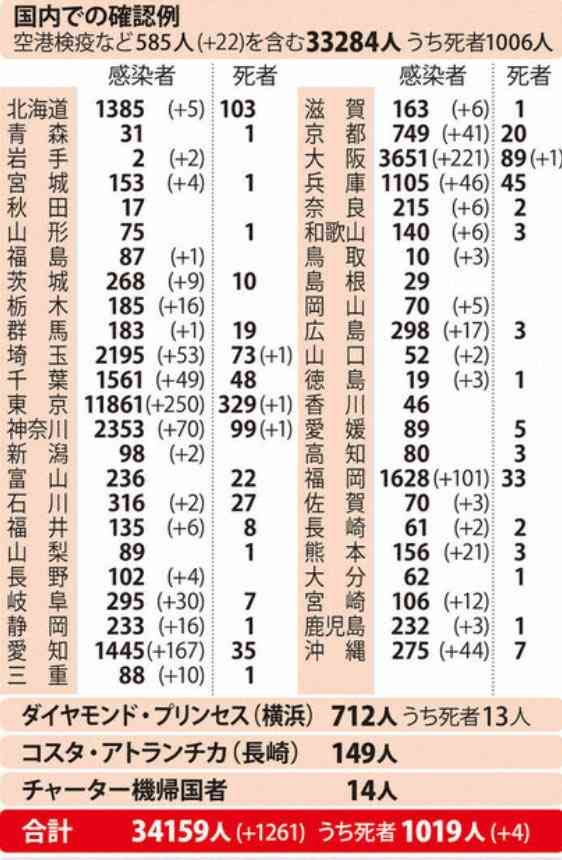 国内での確認例
空港検疫など585人(+22)を含む33284人 うち死者1006人
感染者 死者 感染者 死者
北海道 1385 (+5) 103 滋賀 163 (+6) 1
青森 31 1 京都 749 (+41) 20
岩手 2 (+2) 大阪 3651 (+221) 89 (+1)
宮城 153 (+4) 1 兵庫 1105 (+46) 45
秋田 17 奈良 215 (+6) 2
山形 75 1 和歌山 140 (+6) 3
福島 87 (+1) 鳥取 10 (+3)
茨城 268 (+9) 10 島根 29
栃木 185 (+16) 岡山 70 (+5)
群馬 183 (+1) 19 広島 298 (+17) 3
埼玉 2195 (+53) 73 (+1) 山口 52 (+2)
千葉 1561 (+49) 48 徳島 19 (+3) 1
東京 11861 (+250) 329 (+1) 香川 46
神奈川 2353 (+70) 99 (+1) 愛媛 89 5
新潟 98 (+2) 高知 80 3
富山 236 22 福岡 1628 (+101) 33
石川 316 (+2) 27 佐賀 70 (+3)
福井 135 (+6) 8 長崎 61 (+2) 2
山梨 89 1 熊本 156 (+21) 3
長野 102 (+4) 大分 62 1
岐阜 295 (+30) 7 宮崎 106 (+12)
静岡 233 (+16) 1 鹿児島 232 (+3) 1
愛知 1445 (+167) 35 沖縄 275 (+44) 7
三重 88 (+10) 1
ダイヤモンド・プリンセス(横浜) 712人 うち死者13人
コスタ・アトランチカ(長崎) 149人
チャーター機帰国者 14人
合計 34159人 (+1261) うち死者1019人 (+4)